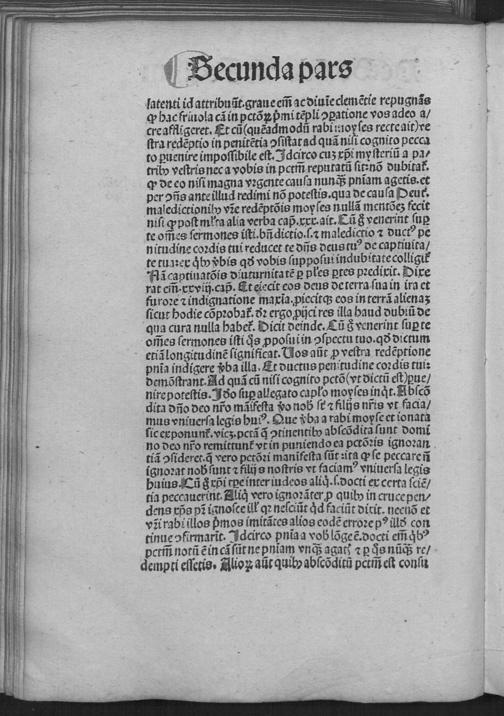 Secunda pars
latenti id attribuũt. graue em̃ ac diuine clemẽtie repugnãs
ꝙ hac friuola cã in pctõꝝ p̃mi tẽpli ꝯꝑatione vos adeo a/
cre affligeret. Et cũ (quẽadmodũ rabi moyses recte ait) re
stra redẽptio in penitẽtia ꝯsistat ad quã nisi cognito pecca
to ꝑuenire impossibile est. Idcirco cuz xp̃i mysteriũ a pa/
trib᷒ vestris nec a vobis in pctm̃ reputatũ sit: nõ dubitat᷑
ꝙ de eo nisi magna vrgente causa nunꝗ̃ pniam agetis. et
per ꝯñs ante illud redimi nõ potestis. qua de causa Deut̃.
maledictionib᷒ vr̃e redẽptõis moyses nullã mentõez fecit
nisi ꝙ post mr̃a alia verba cap̃. xxx. ait. Cũ g̊ venerint suꝑ
te om̃es sermones isti. bñdictio. s. ⁊ maledictio ⁊ duct᷒ pe
nitudine cordis tui reducet te dñs deus tu᷒ de captiuita/
te tua: ex q̇b᷒ v̓bis qd̓ vobis supposui indubitate colligit᷑
Nã captiuatõis diuturnitatẽ ꝑ pl̃es ꝑtes predixit. Dixe
rat em̃. xxviij. cap̃. Et eiecit eos deus de terra sua in ira et
furore ⁊ indignatione maxĩa. ꝓiecitqꝫ eos in terrã alienaz
sicut hodie cõprobat᷑. dr̃ ergo ꝓijci res illa haud dubiũ de
qua cura nulla habet᷑. Dicit deinde. Cũ g̊ venerint suꝑ te
om̃es sermones isti q̃s ꝓposui in ꝯspectu tuo. qd̓ dictum
etiã longitudinẽ significat. Uos aũt ꝓ vestra redẽptione
pnia indigere v̓ba illa. Et ductus penitudine cordis tui:
demõstrant. Ad quã cũ nisi cognito pctõ (vt dictũ est) ꝑue/
nire potestis. Iдo suꝑ allegato cap̃lo moyses inq̇t. Abscõ
dita dño deo nr̃o mãifesta v̓o nob̓ sũt ⁊ filijs nr̃is vt facia/
mus vniuersa legis hui᷒. Que v̓ba a rabi moyse et ionata
sic exponunt᷑. vicz. pctã q̃ ꝯtinentib᷒ abscõdita sunt domi
no deo nr̃o remittunt᷑ vt in puniendo ea pctõris ignoran
tiã ꝯsideret. q̃ vero pctõri manifesta sũt: ita ꝙ se peccare nõ
ignorat nob̓ sunt ⁊ filijs nostris vt faciam᷒ vniuersa legis
huius. Cũ g̊ xp̃i tꝑe inter iudeos aliq̇. s. docti ex certa sciẽ/
tia peccauerint. Aliq̇ vero ignorãter ꝓ quib᷒ in cruce pen/
dens xp̃s pr̃i ignosce ill̓ qꝛ nesciũt qd̓ faciũt dixit. necnõ et
vr̃i rabi illos p̃mos imitãtes alios eodẽ errore p᷒ illd̓ con
tinue ꝯfirmarũt. Idcirco pnia a vob̓ lõge ẽ. docti em̃ q̇b᷒
pctm̃ notũ ẽ in cã sũt ne pniam vnꝗ̃ agat᷑ ⁊ ꝑ ꝯñs nũꝗ̃ re/
dempti essetis. Alioꝝ aũt quib᷒ abscõditũ pctm̃ est consu